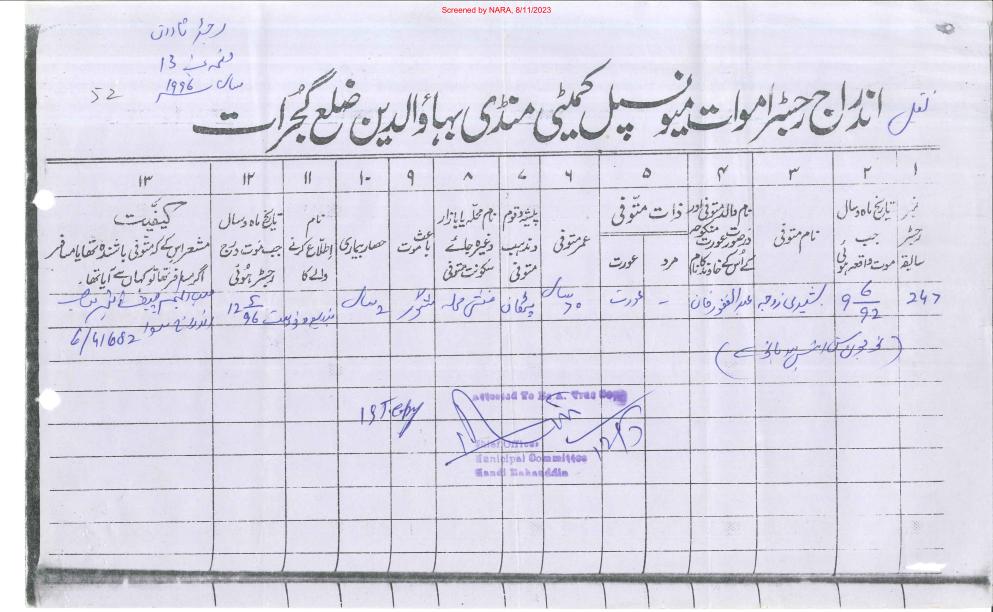 Screened by NARA, 8/11/2023
رجسٹر
13
سال 1996
52
نقل
اندراج رجسٹر اموات میونسپل کمیٹی منڈی بہاؤالدین ضلع گجرات
۱ ۲ ۳ ۴ ۵ ۶ ۷ ۸ ۹ ۱۰ ۱۱ ۱۲ ۱۳
نمبر رجسٹر سابقہ
تاریخ ماہ و سال جب موت واقعہ ہوئی
نام متوفی
نام والد متوفی اور درصورت عورت منکوحہ کے اُس کے خاوند کا نام
ذات متوفی
مرد
عورت
عمر متوفی
پیشہ و قوم و مذہب متوفی
نام محلہ یا بازار وغیرہ جائے سکونت متوفی
باعث موت
حصار بیماری
نام اطلاع کرنے والے کا
تاریخ ماہ و سال جب فوت درج رجسٹر ہوئی
کیفیت
مشعر اس کے کہ متوفی باشندہ تھا یا مسافر
اگر مسافر تھا تو کہاں سے آیا تھا۔
247
9 6/92
زوجہ
عبدالغفور خان
-
عورت
70 سال
پٹھان
محلہ
شوگر
2 سال
12 5/96
6/41682
1st Copy
Attested To Be A. True Copy
Chief Officer
Municipal Committee
Mandi Bahauddin